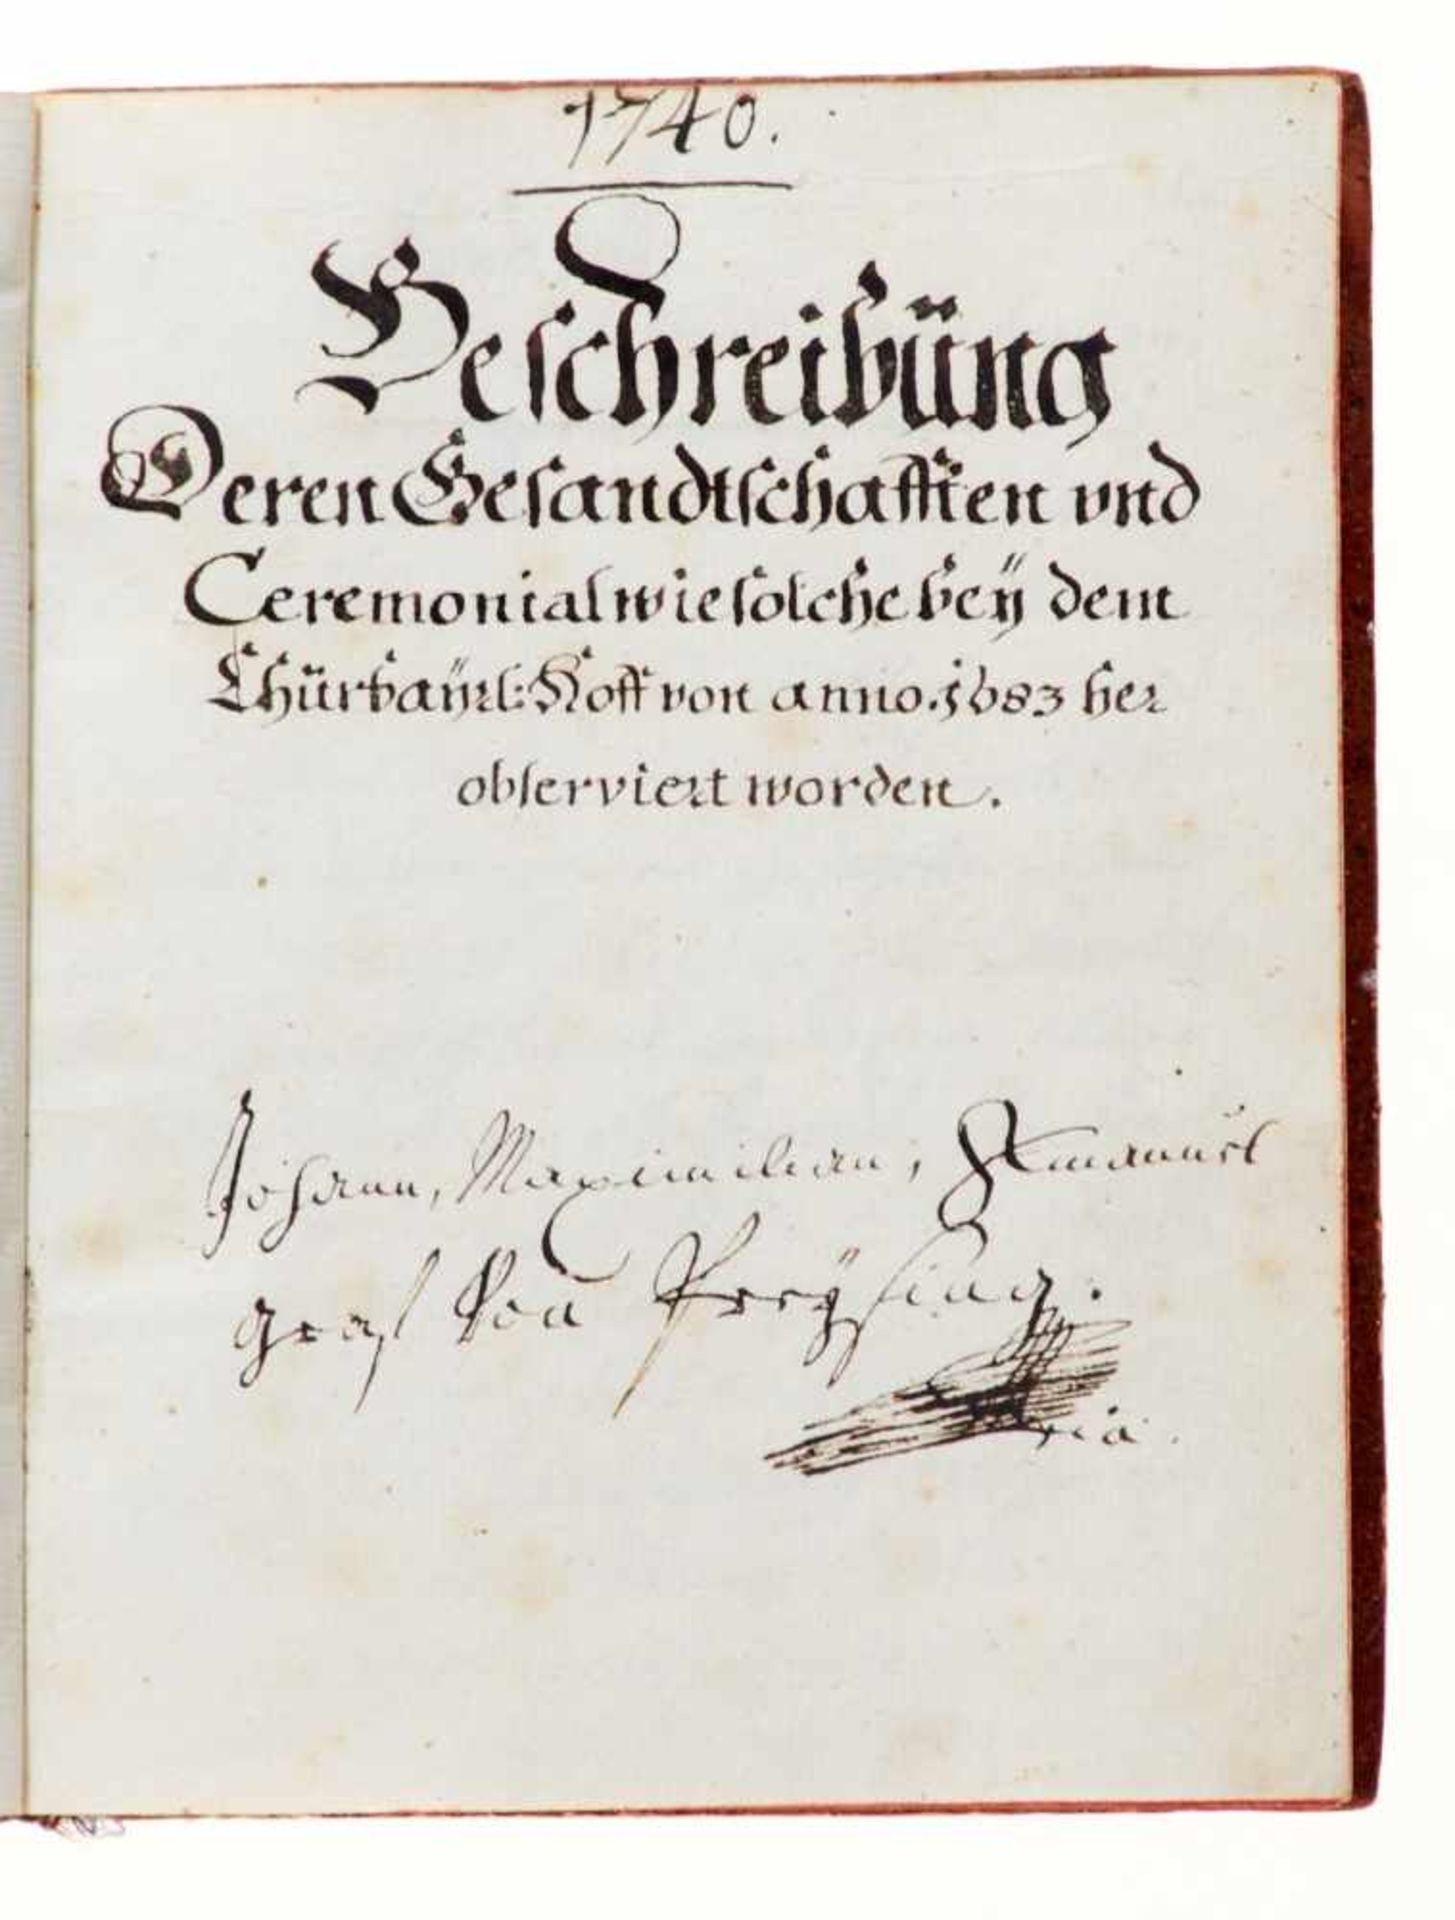 1740.
Beschreibüng
Deren Gesandtschafften vnd
Ceremonial wie solche beÿ dem
Chürbaÿrl: Hoff von anno. 1683 her
observiert worden.
Johann, Maximilian, Emanuel
graf Von Preÿsing.